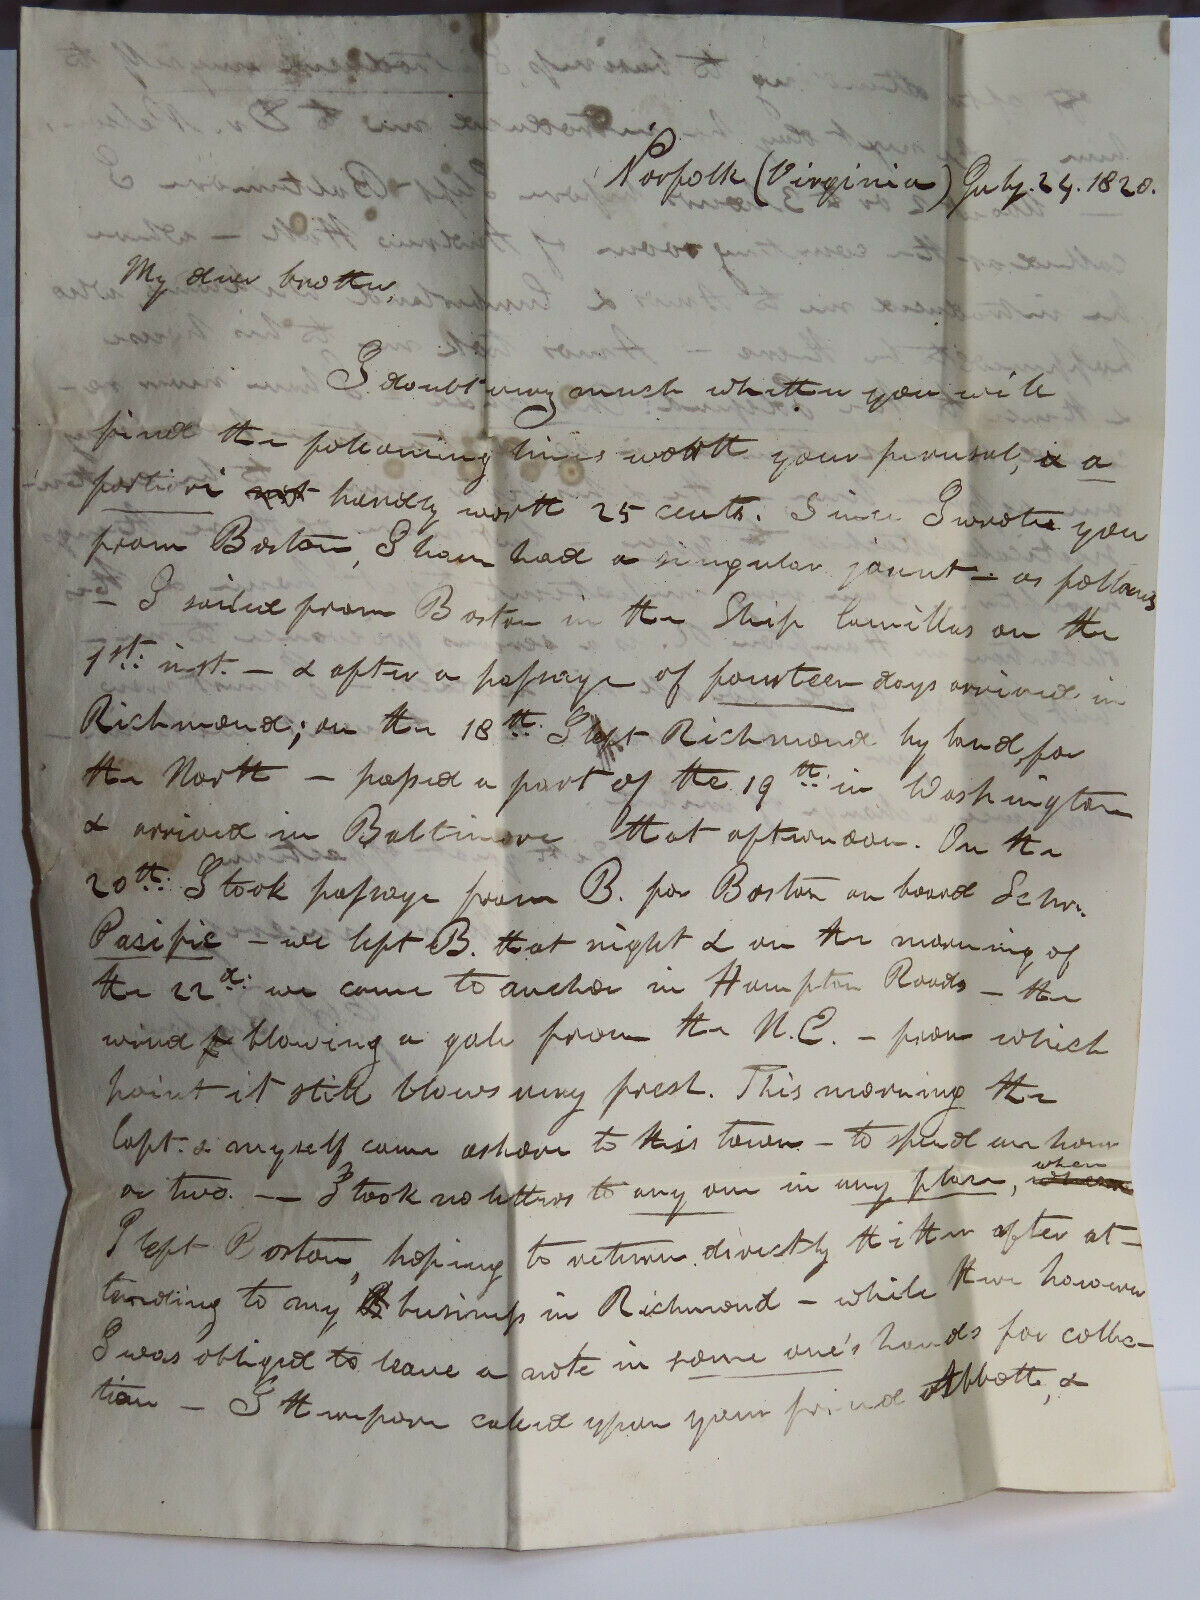 Norfolk (Virginia) July. 24. 1820.
My dear brother,
I doubt very much whether you will
find the following lines worth your perusal, a
portion hardly worth 25 cents. Since I wrote you
from Boston, I have had a singular jaunt – as follows
– I sailed from Boston in the Ship Camillus on the
1st: inst. – & after a passage of fourteen days arrived in
Richmond; on the 18th. I left Richmond by land, for
the North – passed a part of the 19th: in Washington
& arrived in Baltimore that afternoon. On the
20th: I took passage from B. for Boston on board Schr.
Pacific – we left B. that night & on the morning of
the 22d: we came to anchor in Hampton Roads – the
wind blowing a gale from the N.E. – from which
point it still blows very fresh. This morning the
Capt. & myself came ashore to this town – to spend an hour
or two. — I took no letters to any one in any place, when
I left Boston, hoping to return directly thither after at-
tending to my business in Richmond – while there however
I was obliged to leave a note in some one's hands for collec-
tion – I therefore called upon your friend Abbott, &